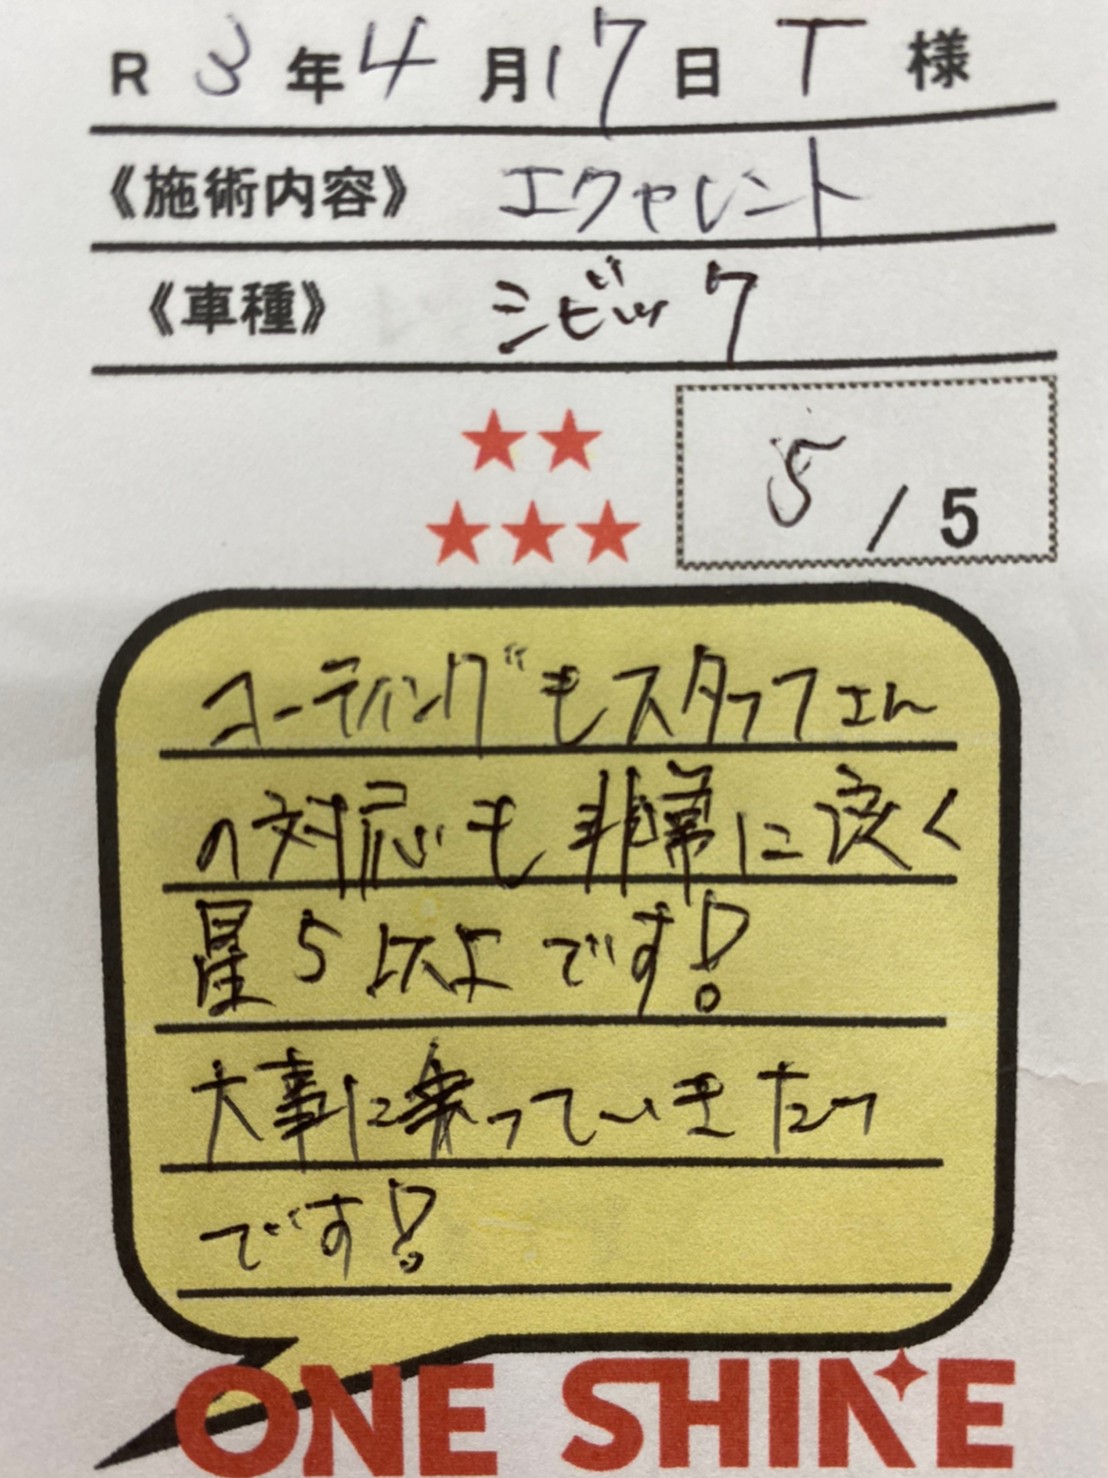 R 3年4月17日 T様
《施術内容》 エクセレント
《車種》 シビック
5/5
コーティングもスタッフさん
の対応も非常に良く
星5以上です!
大事に乗っていきたい
です!
ONE SHINE